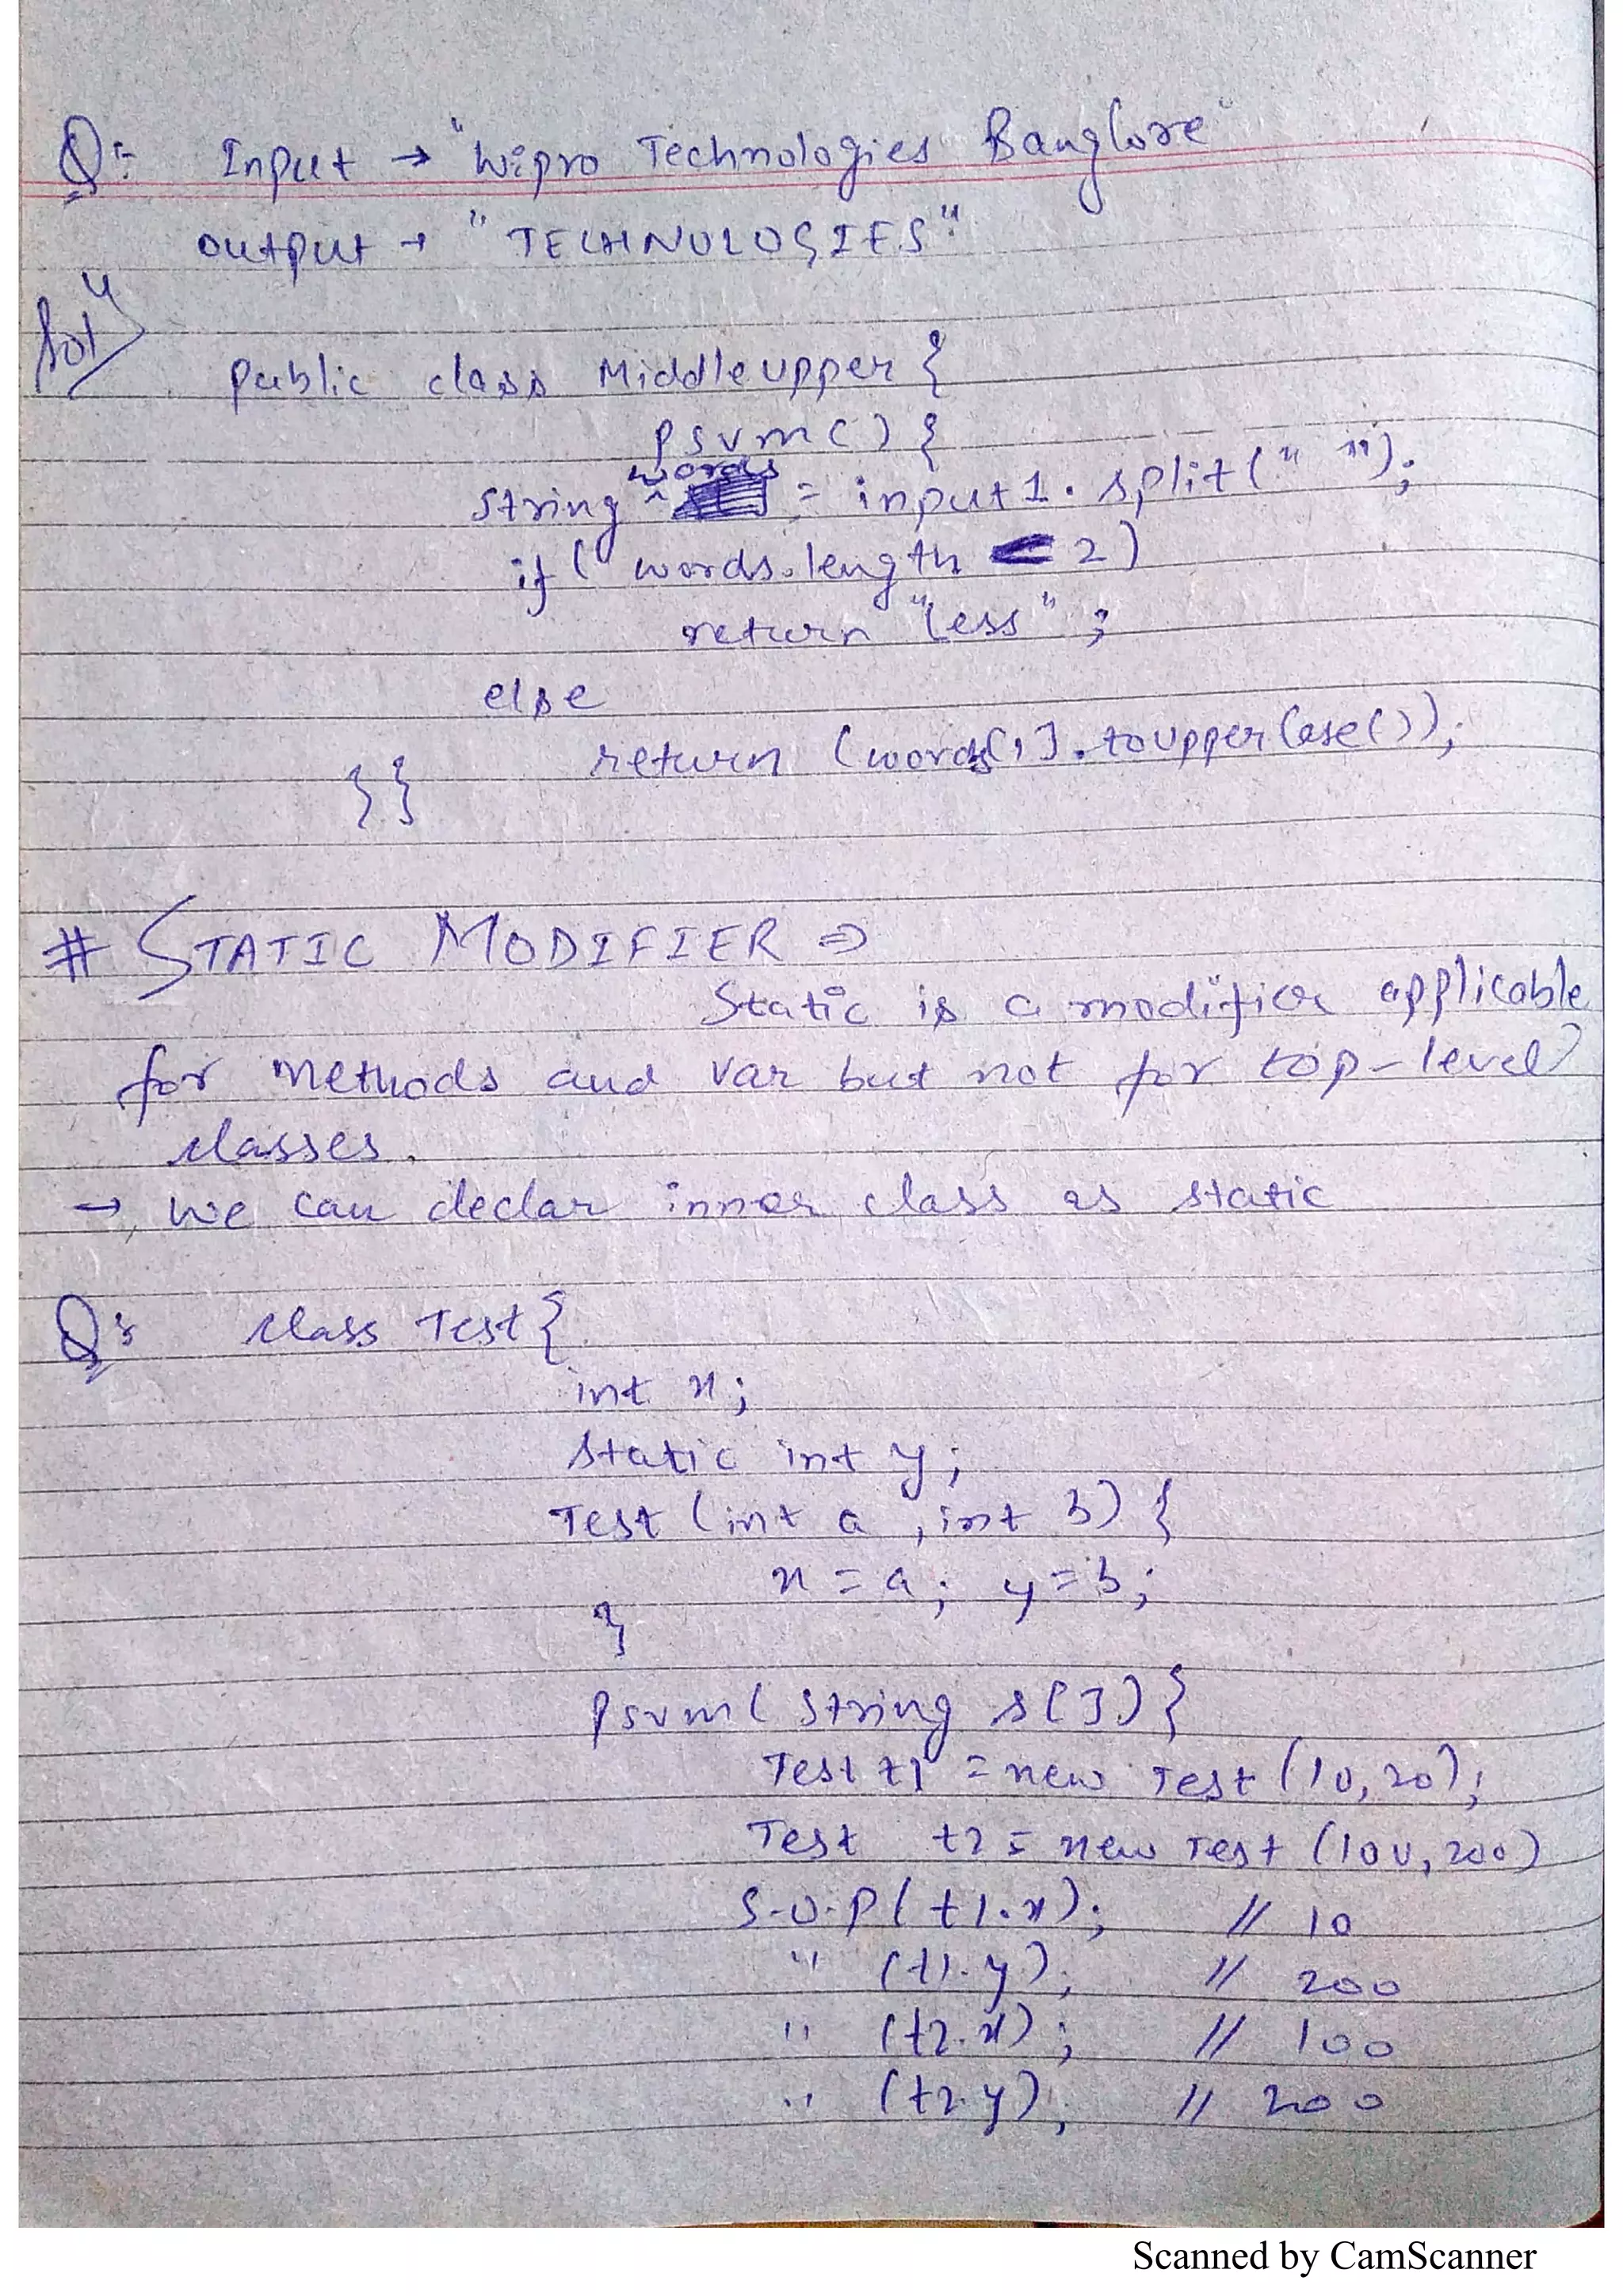 Q:- Input → "Wipro Technologies Banglore"
output → "TECHNOLOGIES".
Solⁿ
public class Middleupper {
psvm() {
String words = input1.split(" ");
if ( words.length < 2)
return "Less" ;
else
return (words[1].toupperCase());
}}
# STATIC MODIFIER ⇒
Static is a modifier applicable
for methods and var but not for top-level
classes.
→ we can declar inner class as static
Q:- class Test{
int x;
static int y;
Test (int a , int b) {
x = a; y = b;
}
psvm( String s[]){
Test t1 = new Test (10, 20);
Test t2 = new Test (100, 200)
S.O.P( t1.x); // 10
" (t1.y); // 200
" (t2.x); // 100
" (t2.y); // 200
Scanned by CamScanner